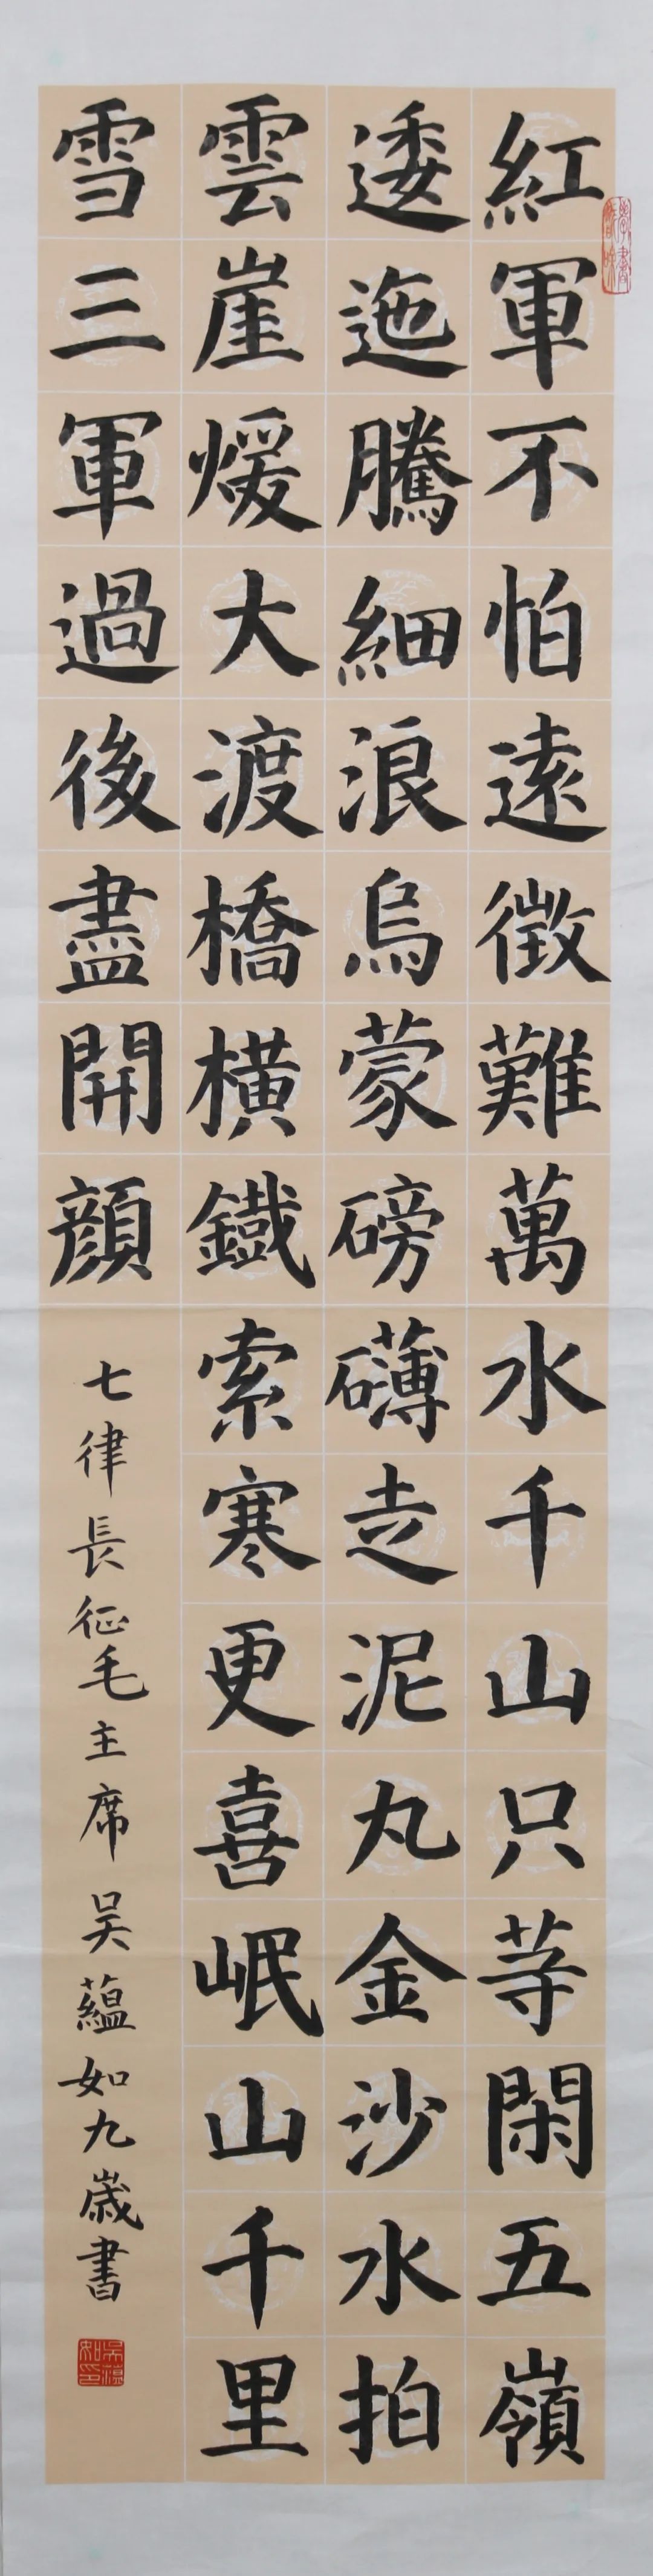 紅軍不怕遠徵難萬水千山只等閑五嶺
逶迤騰細浪烏蒙磅礴走泥丸金沙水拍
雲崖煖大渡橋橫鐵索寒更喜岷山千里
雪三軍過後盡開顔
七律長征毛主席吴蘊如九歲書
吴蘊如印